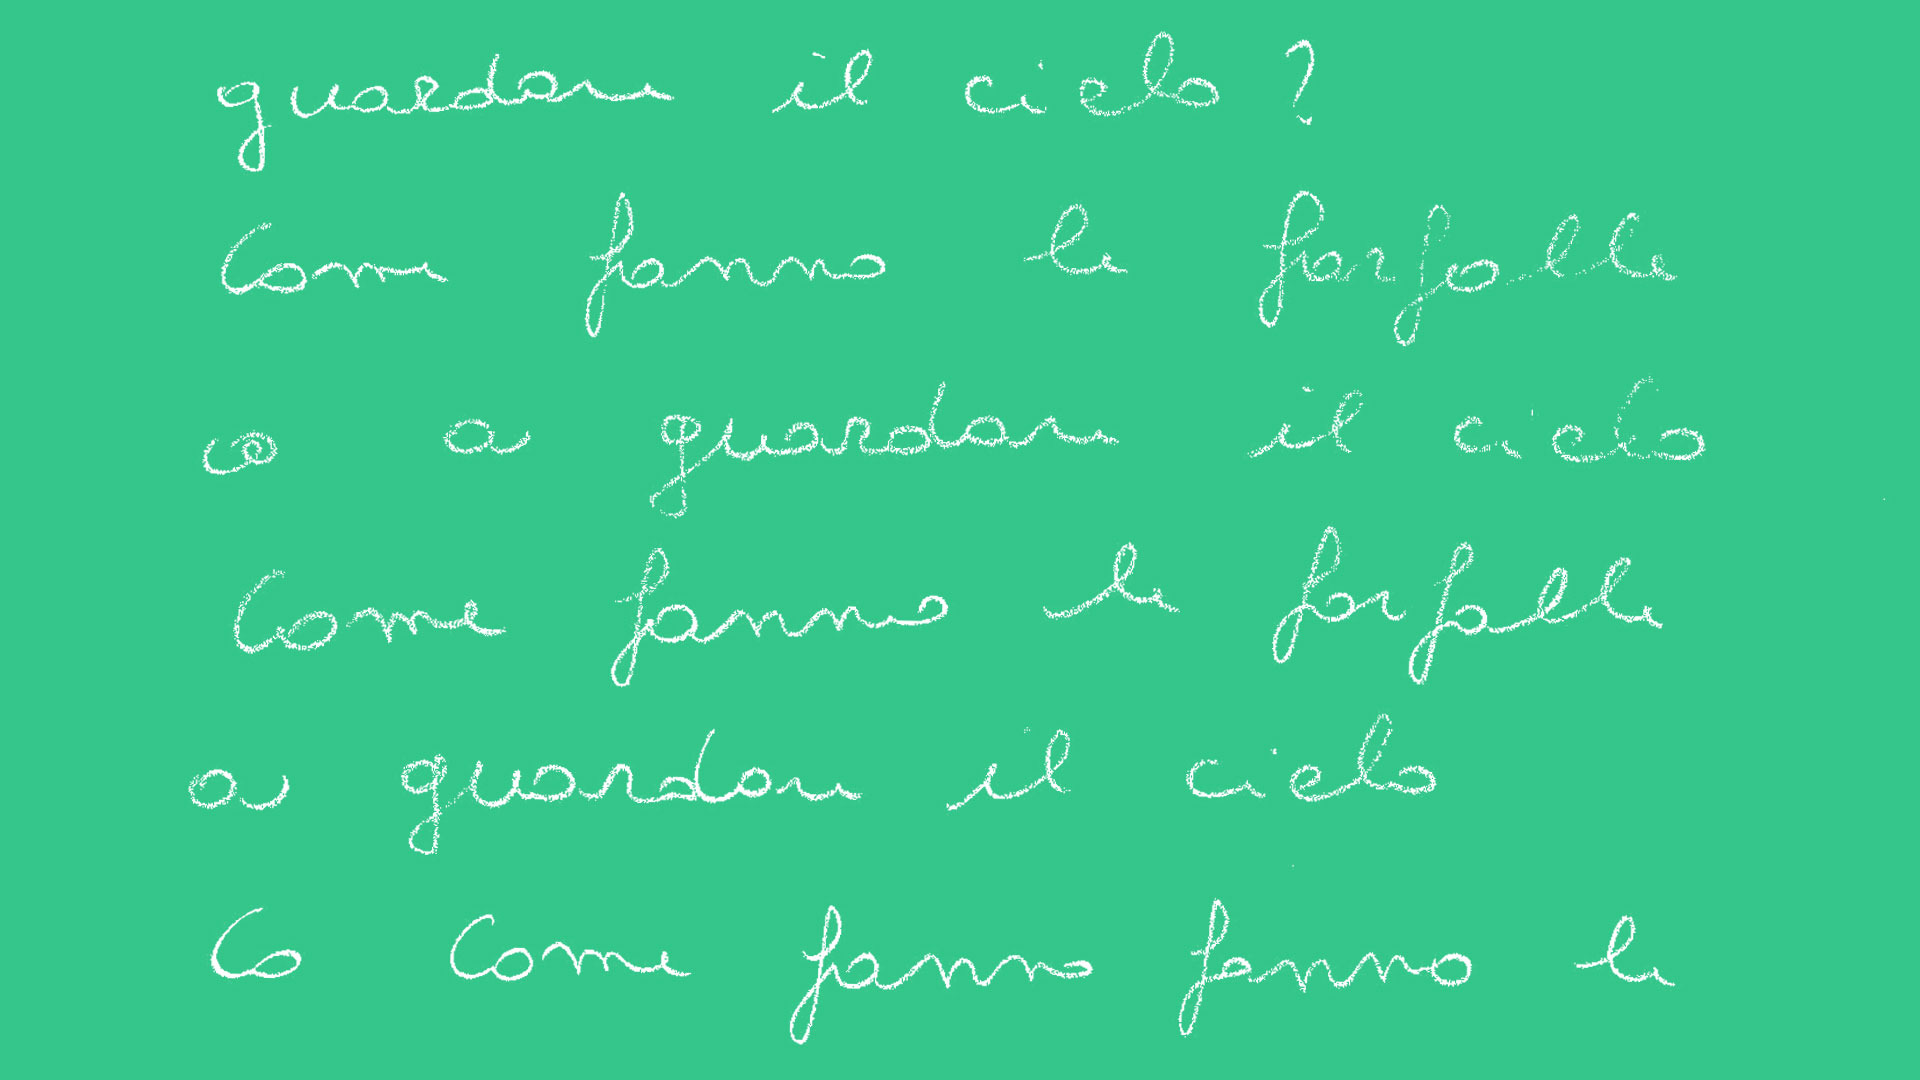 guardare il cielo?
Come fanno le farfalle
co a guardare il cielo
Come fanno le farfalle
a guardare il cielo
Co Come fanno fanno le